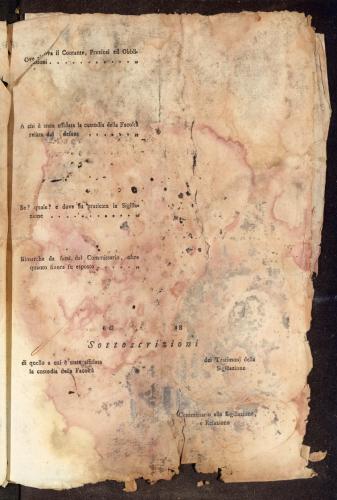 il Contante, Preziosi ed Obbli-
A chi è stata affidata la custodia della Facoltà
relitta dal defunto
Se? quale? e dove fu praticata la Sigilla-
zione
Rimarche da farsi dal Commissario, oltre
quanto finora fu esposto
Sottoscrizioni
di quello a cui è stata affidata
la custodia della Facoltà
dei Testimonj della
Sigillazione
Commissario alla Sigillazione,
e Relazione